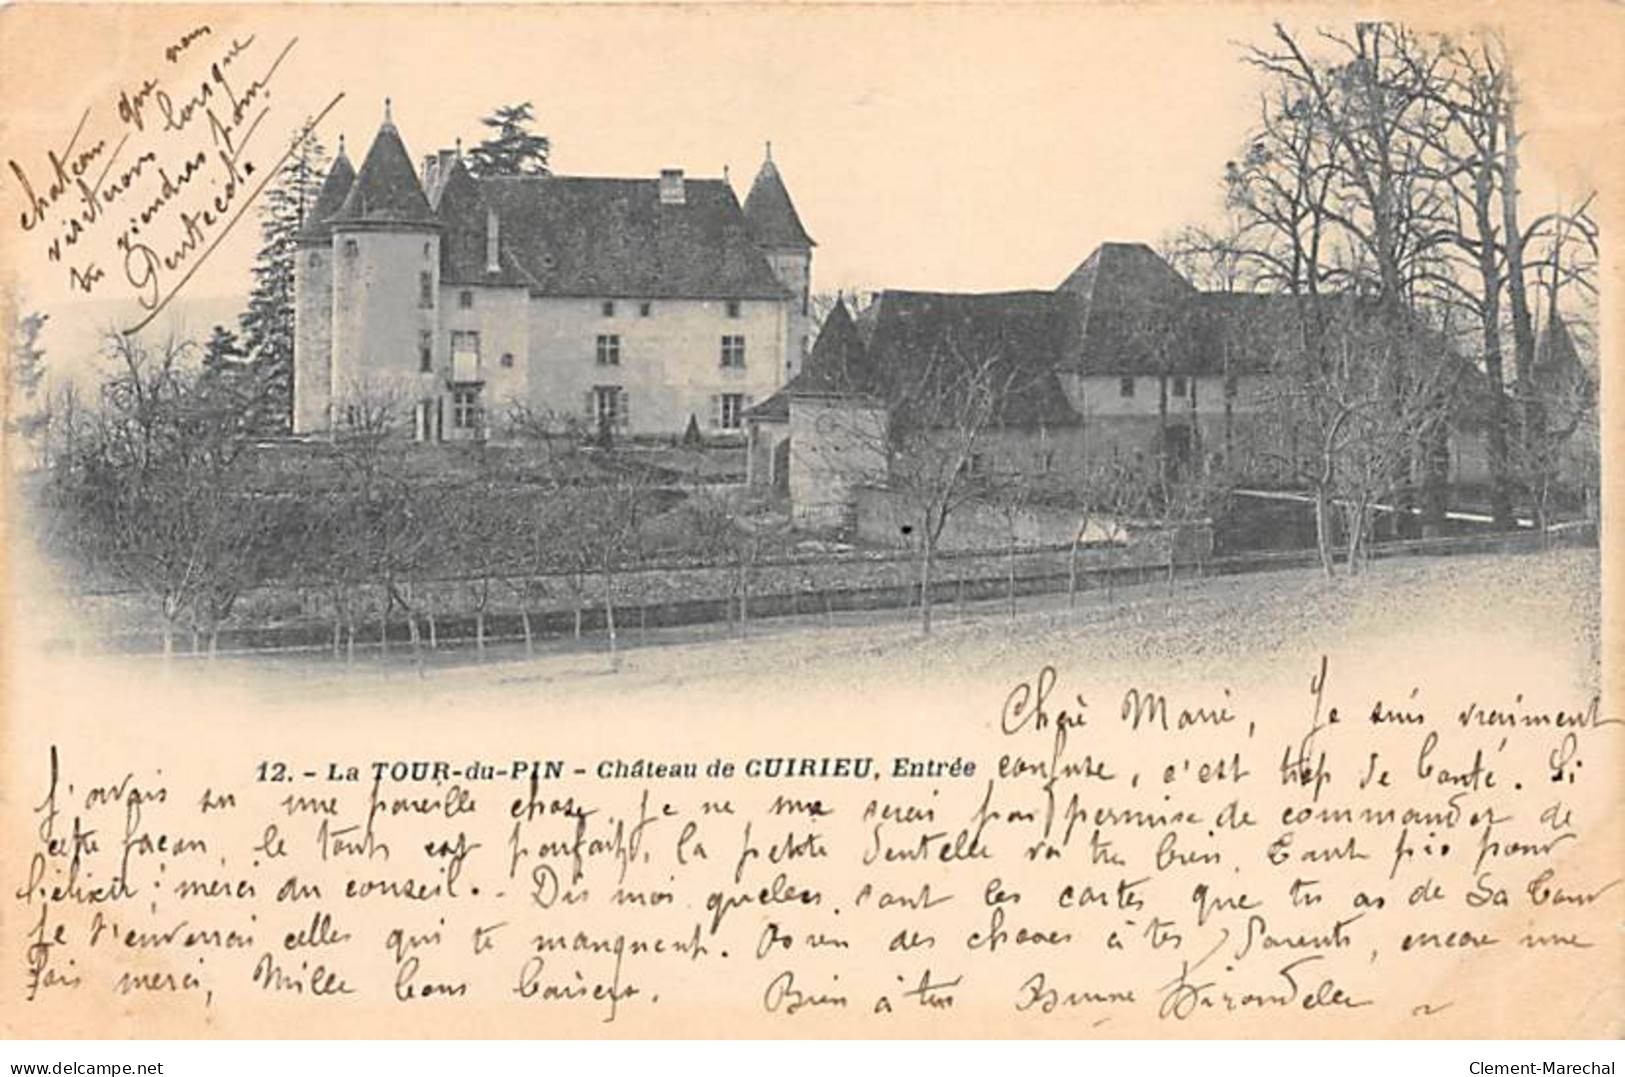 château que nous
visiterons lorsque
tu viendras pour
Pentecôte
Chère Marie, Je suis vraiment
12. - La TOUR-du-PIN - Château de CUIRIEU, Entrée
confuse, c'est trop de bonté. Si
j'avais su une pareille chose je ne me serai pas permise de commander de
cette façon, le tout est parfait, la petite dentelle va très bien. Tant pis pour
l'élixir; merci du conseil. - Dis moi quelles sont les cartes que tu as de La Tour
je t'enverrai celles qui te manquent. Bo en des choses à tes Parents, encore une
Fois merci, Mille bons baisers. Bien à toi Brune Hirondelle
Clement-Marechal